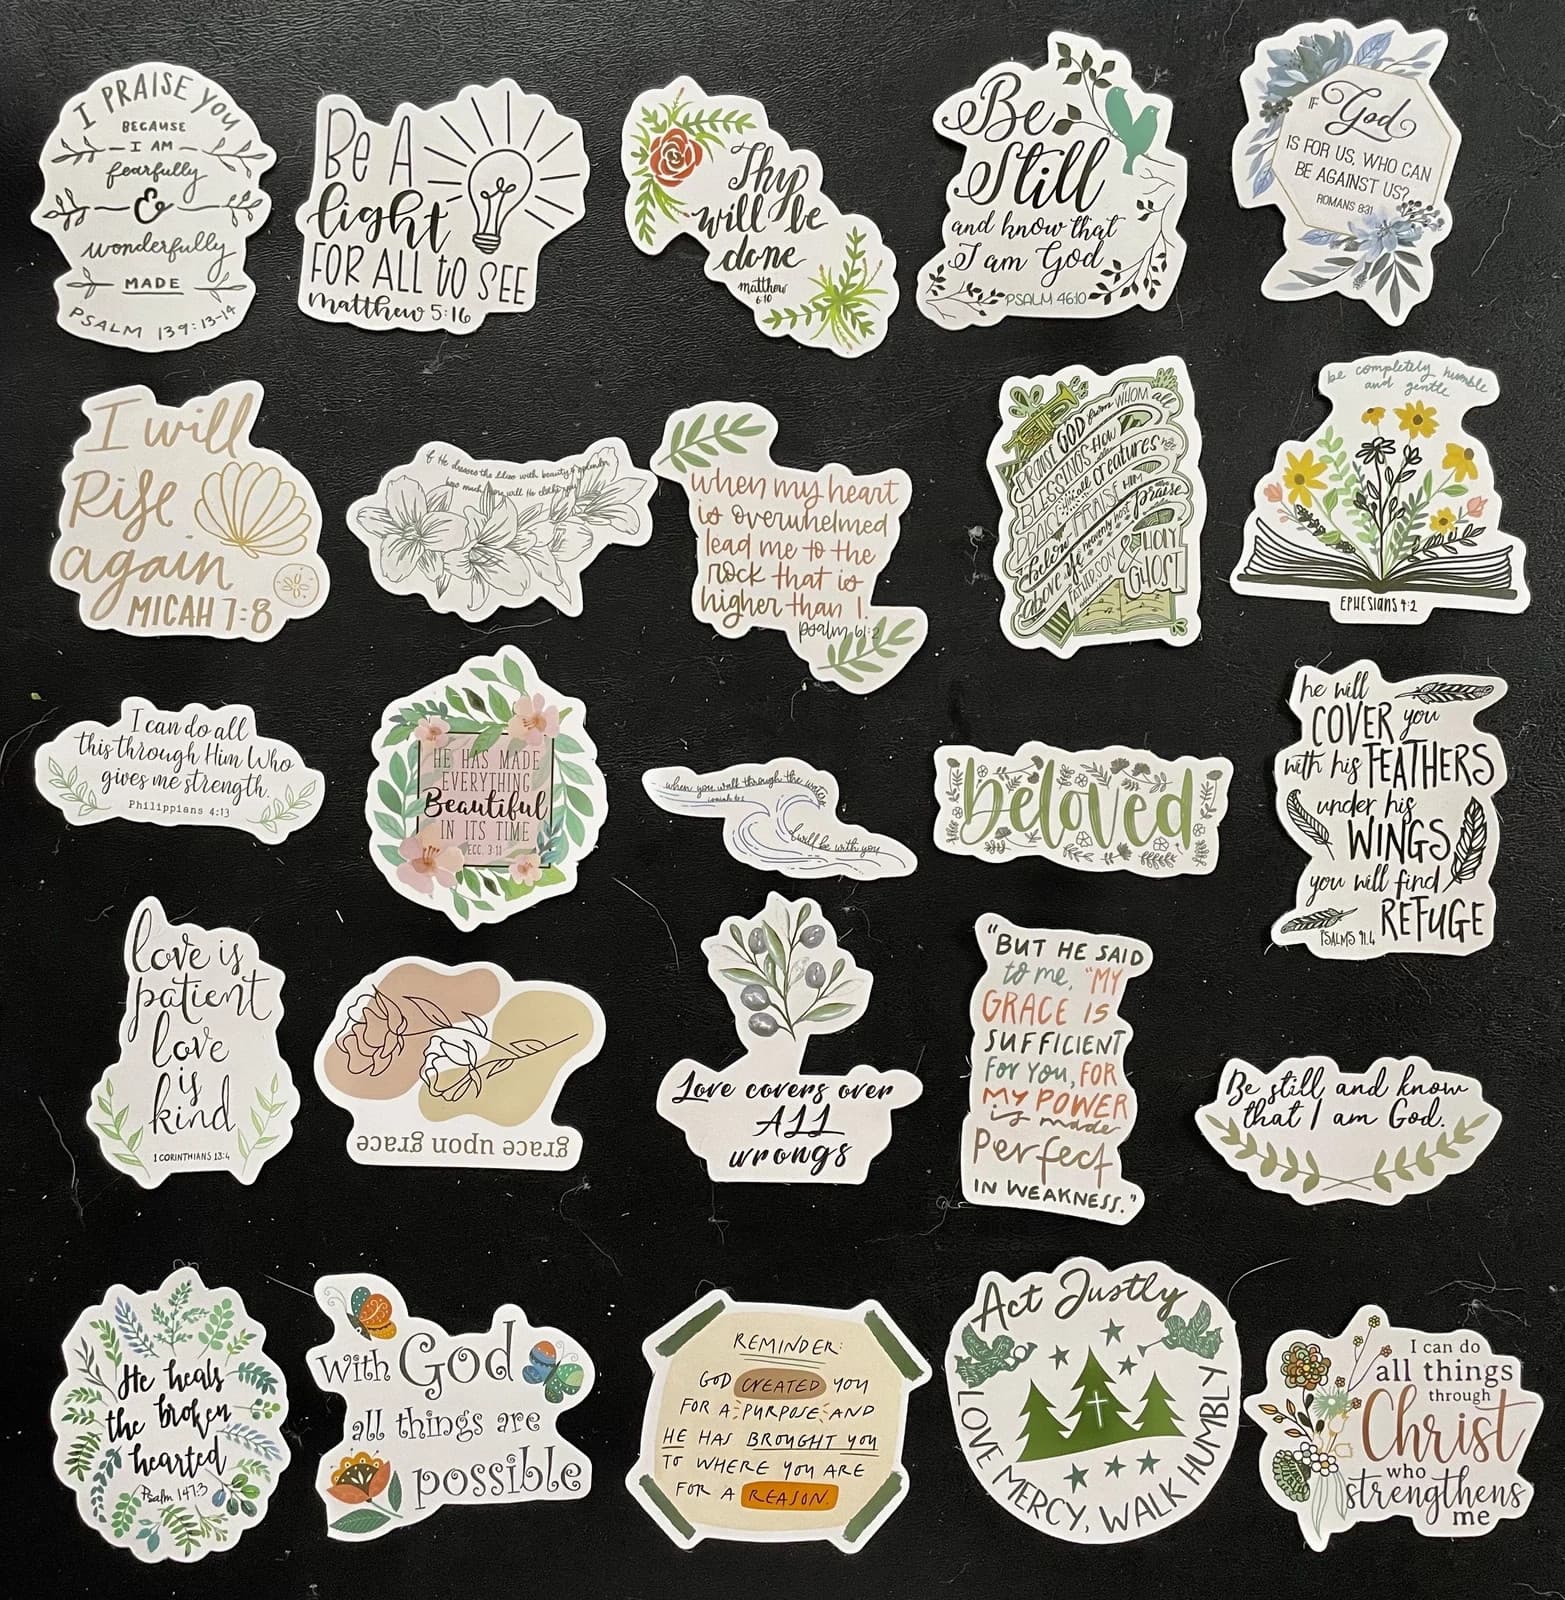 I PRAISE YOU
BECAUSE
I AM
fearfully
&
wonderfully
MADE
PSALM 139:13-14
BE A
light
FOR ALL to SEE
matthew 5:16
Thy
will be
done
matthew
6:10
Be
Still
and know that
I am God
PSALM 46:10
IF God
IS FOR US, WHO CAN
BE AGAINST US?
ROMANS 8:31
I will
Rise
again
MICAH 7:8
If He dresses the lilies with beauty & splendor
how much more will He clothe you
when my heart
is overwhelmed
lead me to the
rock that is
higher than I.
psalm 61:2
PRAISE GOD from WHOM all
BLESSINGS FLOW
PRAISE HIM all creatures here
below PRAISE HIM
above ye heavenly host praise
FATHER SON & HOLY
GHOST
be completely humble
and gentle
EPHESIANS 4:2
I can do all
this through Him Who
gives me strength.
Philippians 4:13
HE HAS MADE
EVERYTHING
Beautiful
IN ITS TIME
ECC. 3:11
when you walk through the waters
I will be with you
beloved
he will
COVER you
with his FEATHERS
under his
WINGS
you will find
REFUGE
PSALMS 91:4
love is
patient
love
is
kind
1 CORINTHIANS 13:4
grace upon grace
Love covers over
ALL
wrongs
"BUT HE SAID
to me, "MY
GRACE IS
SUFFICIENT
FOR YOU, FOR
MY POWER
is made
Perfect
IN WEAKNESS."
Be still and know
that I am God.
He heals
the broken
hearted
Psalm 147:3
With God
all things are
possible
REMINDER:
GOD CREATED YOU
FOR A PURPOSE AND
HE HAS BROUGHT YOU
TO WHERE YOU ARE
FOR A REASON.
Act Justly
LOVE MERCY, WALK HUMBLY
I can do
all things
through
Christ
who
strengthens
me